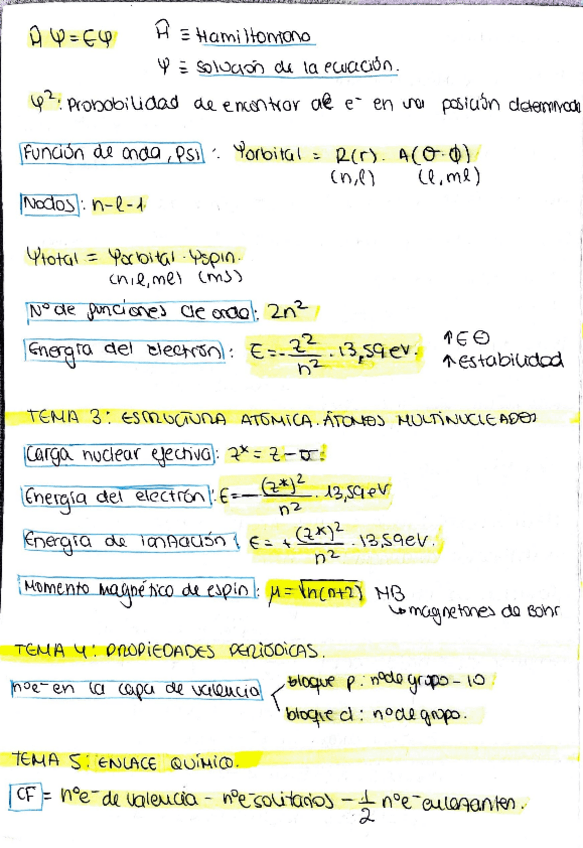 Ĥ Ψ = EΨ Ĥ ≡ Hamiltoniano
Ψ ≡ solución de la ecuación.
Ψ²: Probabilidad de encontrar al e⁻ en una posición determinada
Función de onda, Psi: Ψorbital = R(r) · A(θ·ϕ)
(n,l) (l, ml)
Nodos: n-l-1
Ψtotal = Ψorbital · Ψspin.
(n,l,ml) (ms)
Nº de funciones de onda: 2n²
Energía del electrón: E = - z²/n² · 13,59 eV. ↑E ⊖
↑estabilidad
TEMA 3: ESTRUCTURA ATÓMICA. ÁTOMOS MULTINUCLEADOS
Carga nuclear efectiva: z* = z - σ
Energía del electrón: E = - (z*)²/n² · 13,59 eV
Energía de ionización: E = + (z*)²/n² · 13,59 eV.
Momento magnético de espin: μ = √n(n+2) MB
↳ magnetones de Bohr
TEMA 4: PROPIEDADES PERIÓDICAS.
nº e⁻ en la capa de valencia bloque p: nº de grupo - 10
bloque d: nº de grupo.
TEMA 5: ENLACE QUÍMICO.
CF = nº e⁻ de valencia - nº e⁻ solitarios - 1/2 nº e⁻ enlazantes.